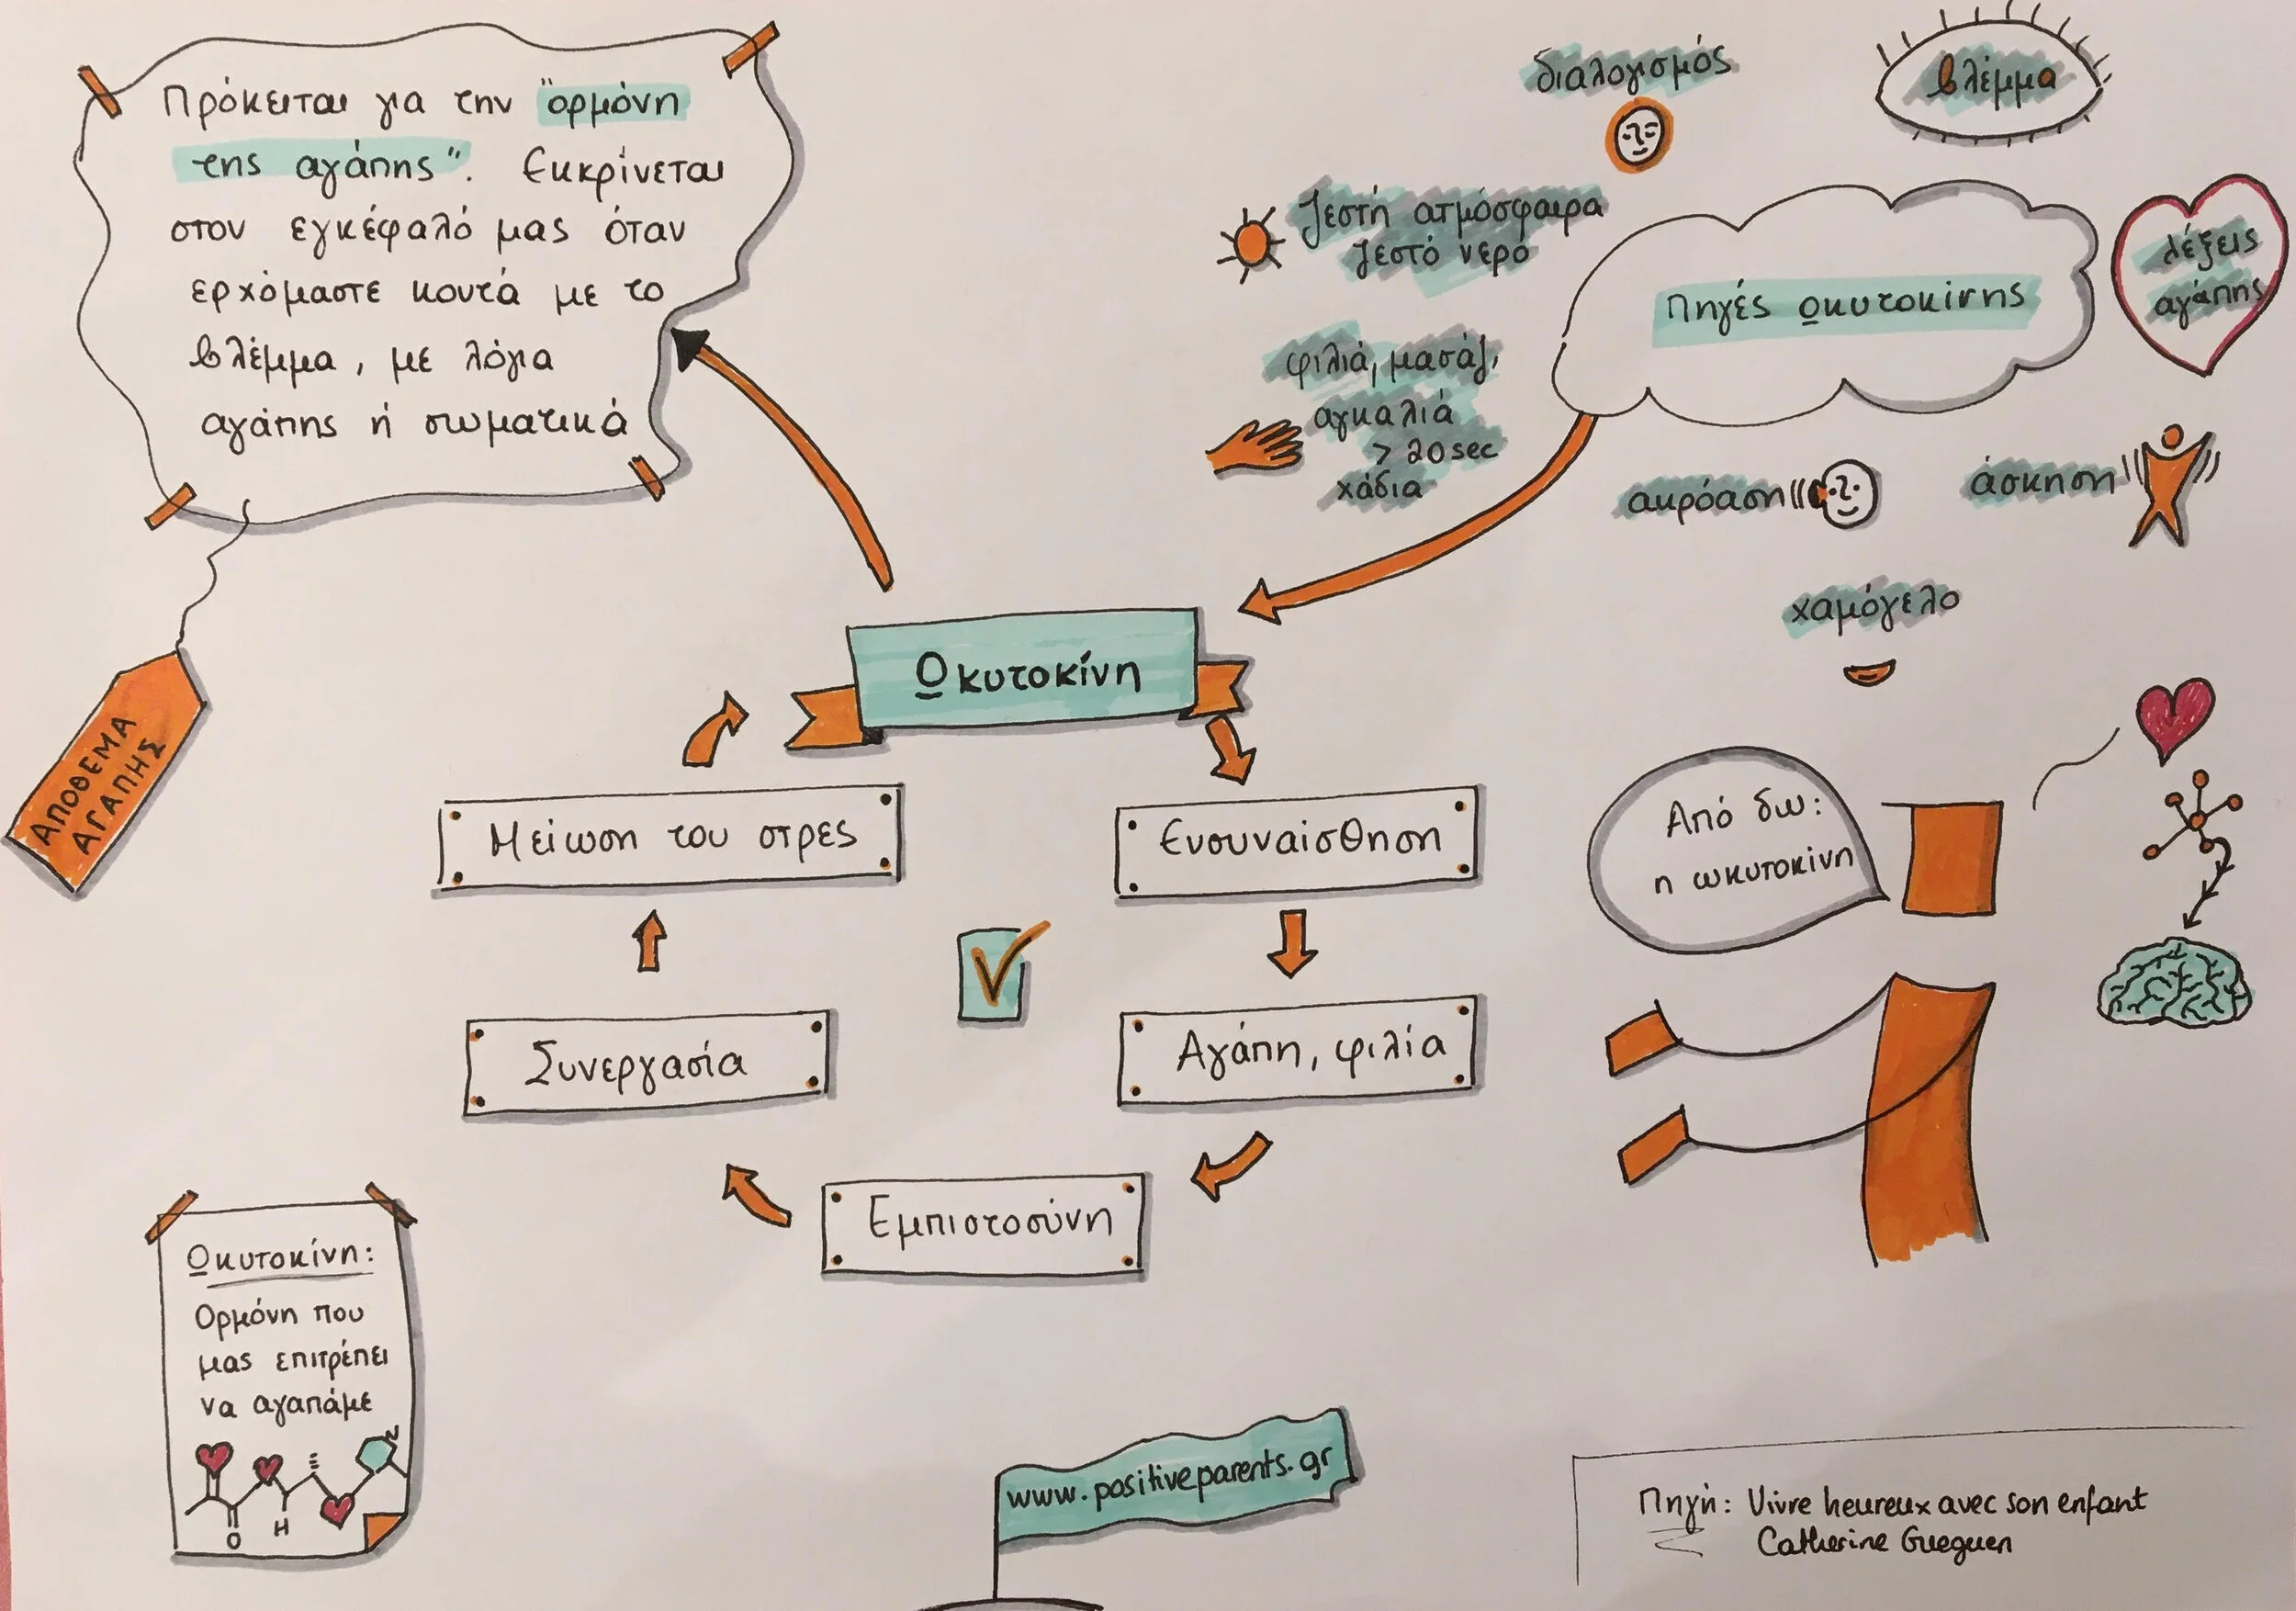 Πρόκειται για την "ορμόνη
της αγάπης". Εκκρίνεται
στον εγκέφαλό μας όταν
ερχόμαστε κοντά με το
βλέμμα, με λόγια
αγάπης ή σωματικά
ΑΠΟΘΕΜΑ
ΑΓΑΠΗΣ
διαλογισμός
βλέμμα
ζεστή ατμόσφαιρα
ζεστό νερό
Πηγές ωκυτοκίνης
λέξεις
αγάπης
φιλιά, μασάζ,
αγκαλιά
> 20 sec
χάδια
ακρόαση
άσκηση
χαμόγελο
Ωκυτοκίνη
Μείωση του στρες
Ενσυναίσθηση
Συνεργασία
Αγάπη, φιλία
Εμπιστοσύνη
Από δω:
η ωκυτοκίνη
Ωκυτοκίνη:
Ορμόνη που
μας επιτρέπει
να αγαπάμε
N
O
H
www.positiveparents.gr
Πηγή: Vivre heureux avec son enfant
Catherine Gueguen